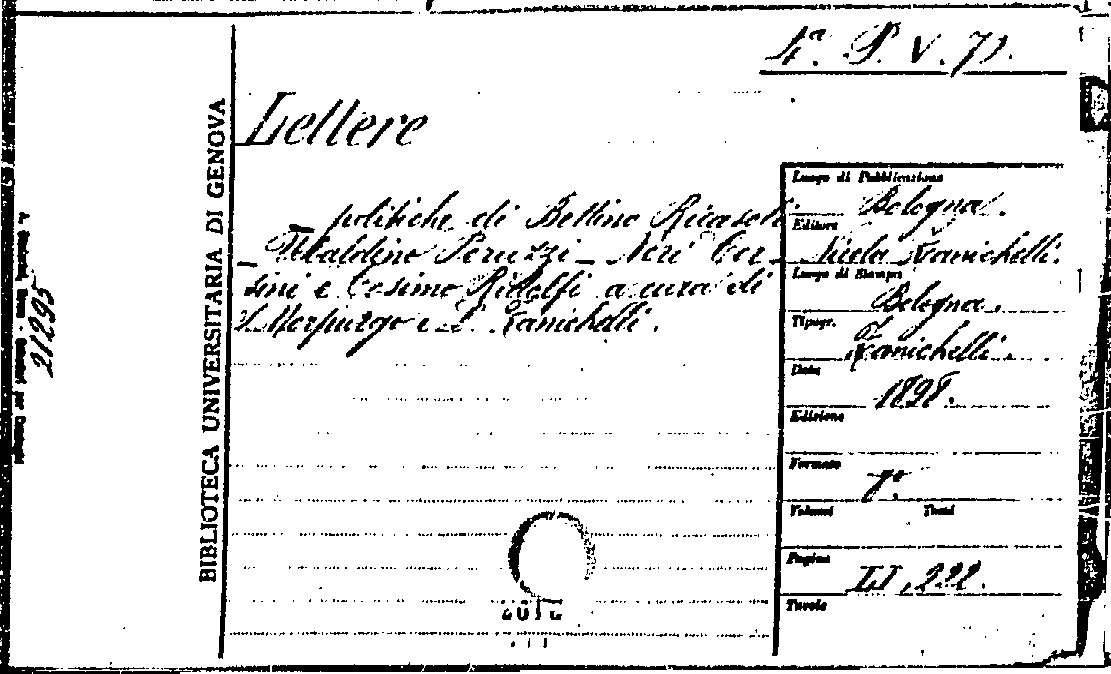 4ª. P. V. 71.
Lettere
politiche di Bettino Ricasoli.
Ubaldino Peruzzi - Neri Cor-
sini e Cosimo Ridolfi a cura di
S. Morpurgo e D. Zanichelli.
Luogo di Pubblicazione
Bologna.
Editore
Nicola Zanichelli.
Luogo di Stampa
Bologna.
Tipogr.
Zanichelli.
Data
1898.
Edizione
Formato
8º.
Volumi Tomi
Pagine
LI, 222.
Tavole
BIBLIOTECA UNIVERSITARIA DI GENOVA
21295